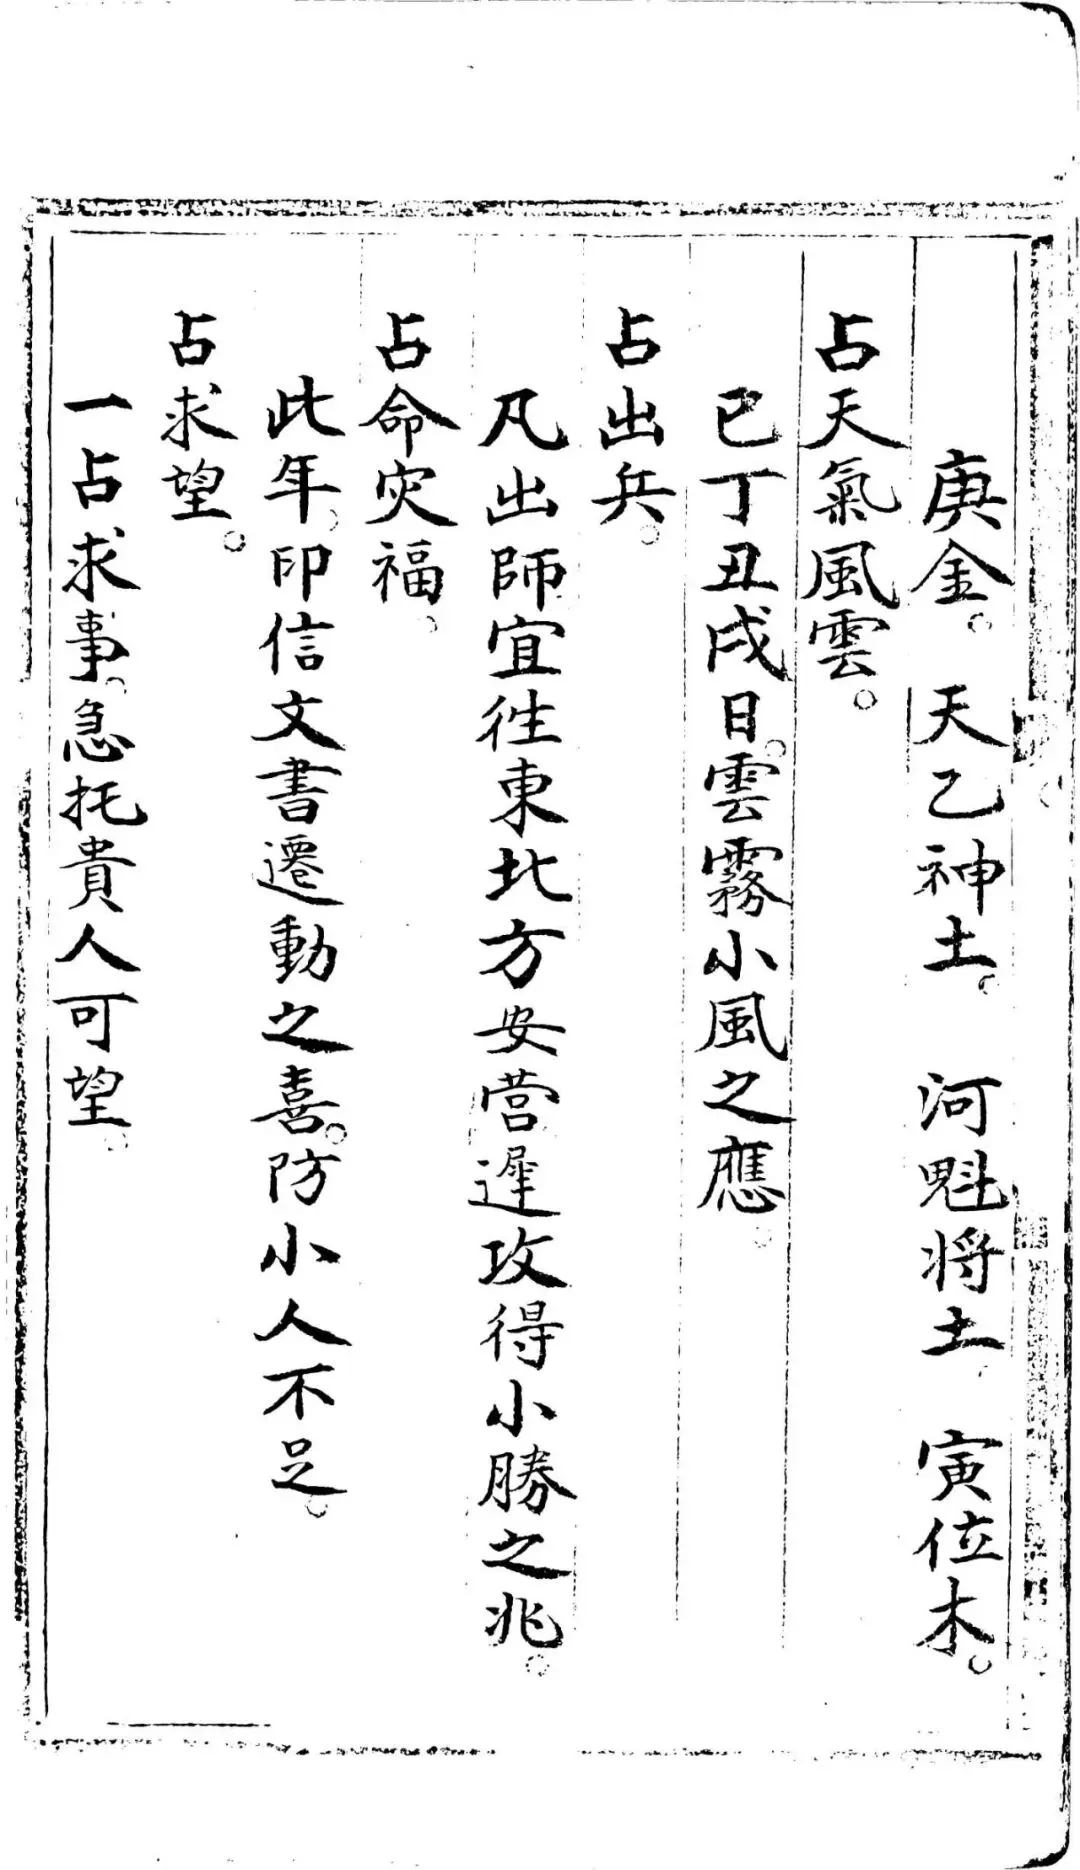 庚金。天乙神土。河魁将土 寅位木。
占天氣風雲。
已丁丑戌日。雲霧小風之應。
占出兵。
凡出師宜徃東北方安營遲攻得小勝之兆。
占命灾福。
此年。印信文書遷動之喜。防小人不足。
占求望。
一占求事。急托貴人可望。